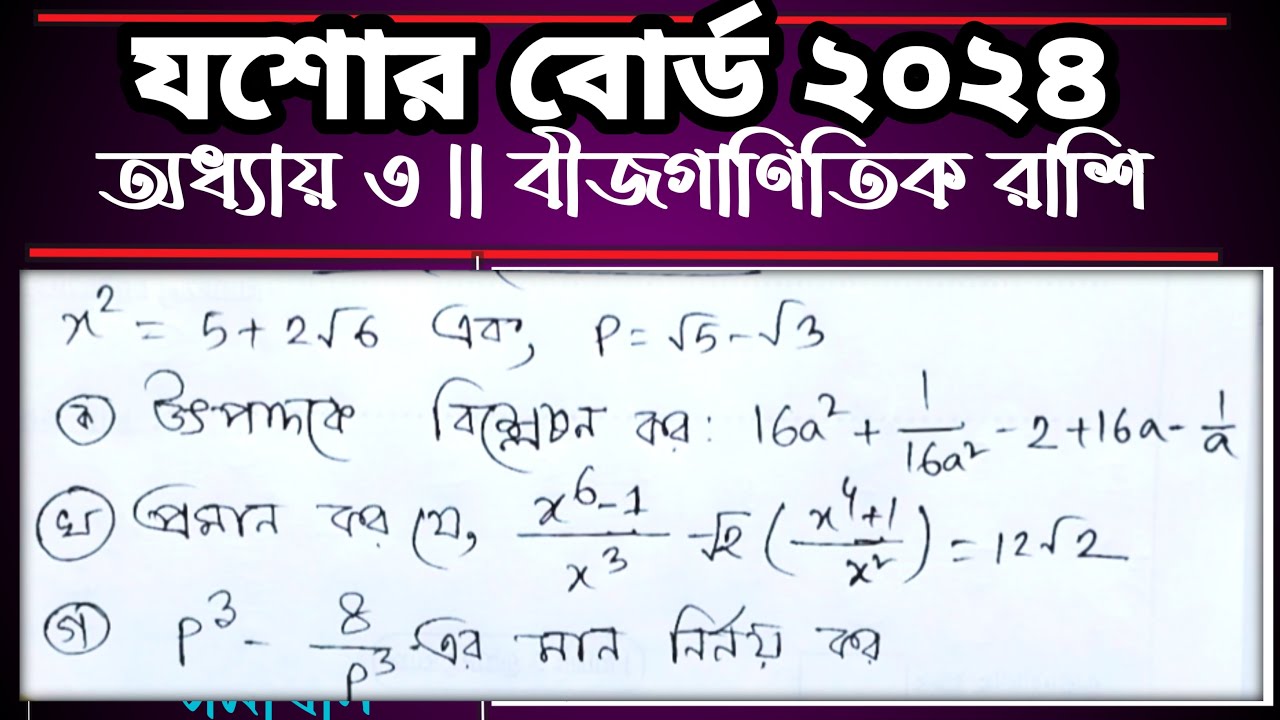 যশোর বোর্ড ২০২৪
অধ্যায় ৩ || বীজগাণিতিক রাশি
x² = 5 + 2√6 এবং, P = √5 - √3
ক উৎপাদকে বিশ্লেষন কর: 16a² + 1/16a² - 2 + 16a - 1/a
খ প্রমান কর যে, x⁶-1/x³ - √2 (x⁴+1/x²) = 12√2
গ P³ - 8/P³ এর মান নির্নয় কর